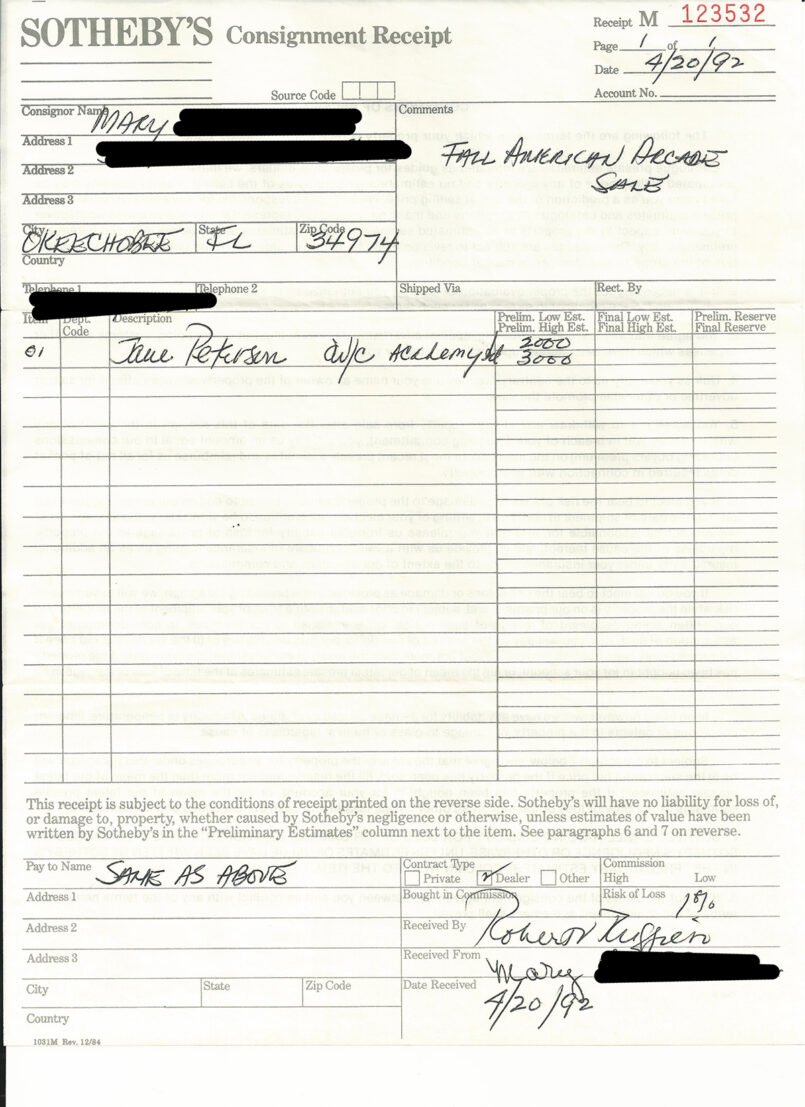 SOTHEBY'S Consignment Receipt
Receipt M 123532
Page 1 of 1
Date 4/20/92
Source Code
Account No.
Consignor Name MARY
Comments
Address 1
FALL AMERICAN ARCADE
SALE
Address 2
Address 3
City OKEECHOBEE State FL Zip Code 34974
Country
Telephone 1 Telephone 2 Shipped Via Rect. By
Item Dept. Code Description Prelim. Low Est. Prelim. High Est. Final Low Est. Final High Est. Prelim. Reserve Final Reserve
01 Jane Peterson w/c ACADEMY 2000
3000
This receipt is subject to the conditions of receipt printed on the reverse side. Sotheby's will have no liability for loss of,
or damage to, property, whether caused by Sotheby's negligence or otherwise, unless estimates of value have been
written by Sotheby's in the "Preliminary Estimates" column next to the item. See paragraphs 6 and 7 on reverse.
Pay to Name SAME AS ABOVE
Contract Type
Private Dealer Other
Commission
High Low
Address 1
Bought in Commission
Risk of Loss 1%
Address 2
Received By Robert
Address 3
Received From Mary
City State Zip Code
Date Received 4/20/92
Country
1031M Rev. 12/84